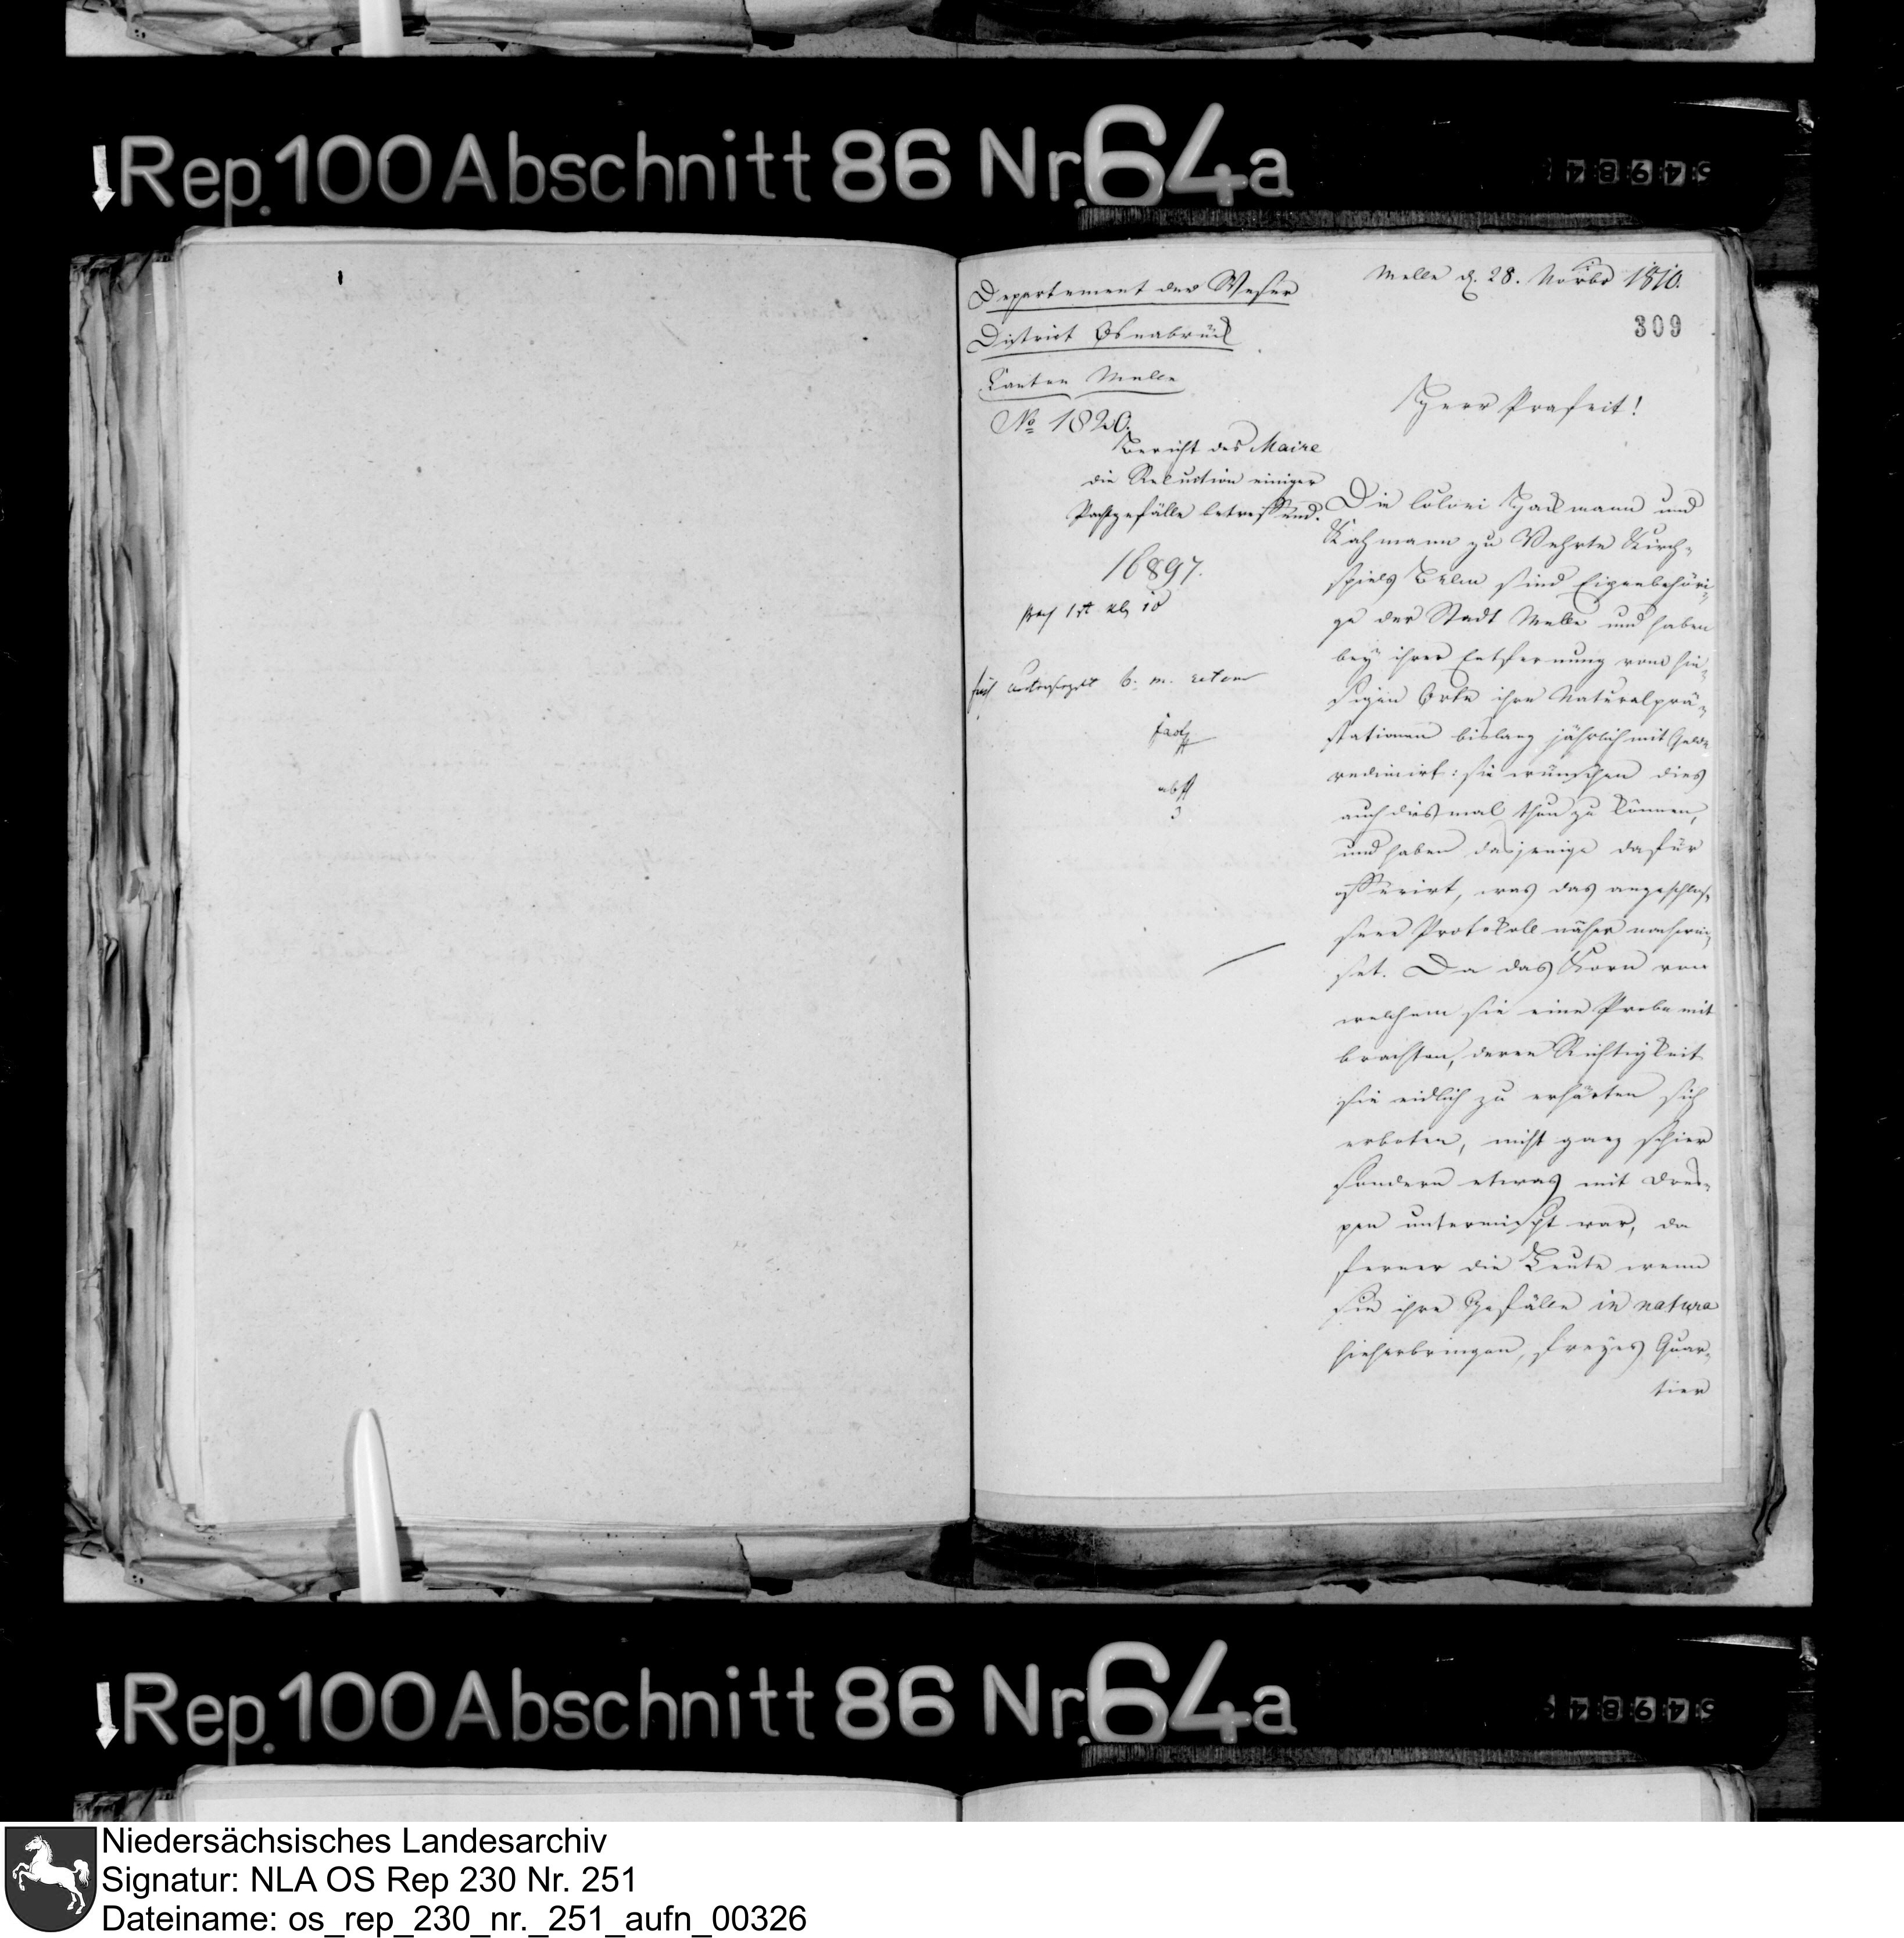 Rep. 100 Abschnitt 86 Nr. 64a
Departement der Weser
District Osnabrück
Canton Melle
No 1820.
Bericht des Maire
die Reluition einiger
Pachtgefälle betreffend.
16897.
b. m.
Melle d. 28. Novbr 1810.
309
Herr Präfect!
Die Coloni Hackmann und
Kahmann zu Vehrte Kirch-
spiels Belm sind Eigenbehöri-
ge der Stadt Melle und haben
bey ihrer Entfernung vom hie-
sigen Orte ihre Naturalprä-
stationen bislang jährlich mit Gelde
redimirt: sie wünschen dies
auch diesmal thun zu können,
und haben dasjenige dafür
offerirt, was das angeschlos-
sene Protokoll näher nachwei-
set. Da das Korn von
welchem sie eine Probe mit
brachten, deren Richtigkeit
sie eidlich zu erhärten sich
erboten, nicht ganz schier
sondern etwas mit Dres-
pen untermischt war, da
ferner die Leute wenn
sie ihre Gefälle in natura
hieherbringen, freyes Quar-
tier
Rep. 100 Abschnitt 86 Nr. 64a
Niedersächsisches Landesarchiv
Signatur: NLA OS Rep 230 Nr. 251
Dateiname: os_rep_230_nr._251_aufn_00326